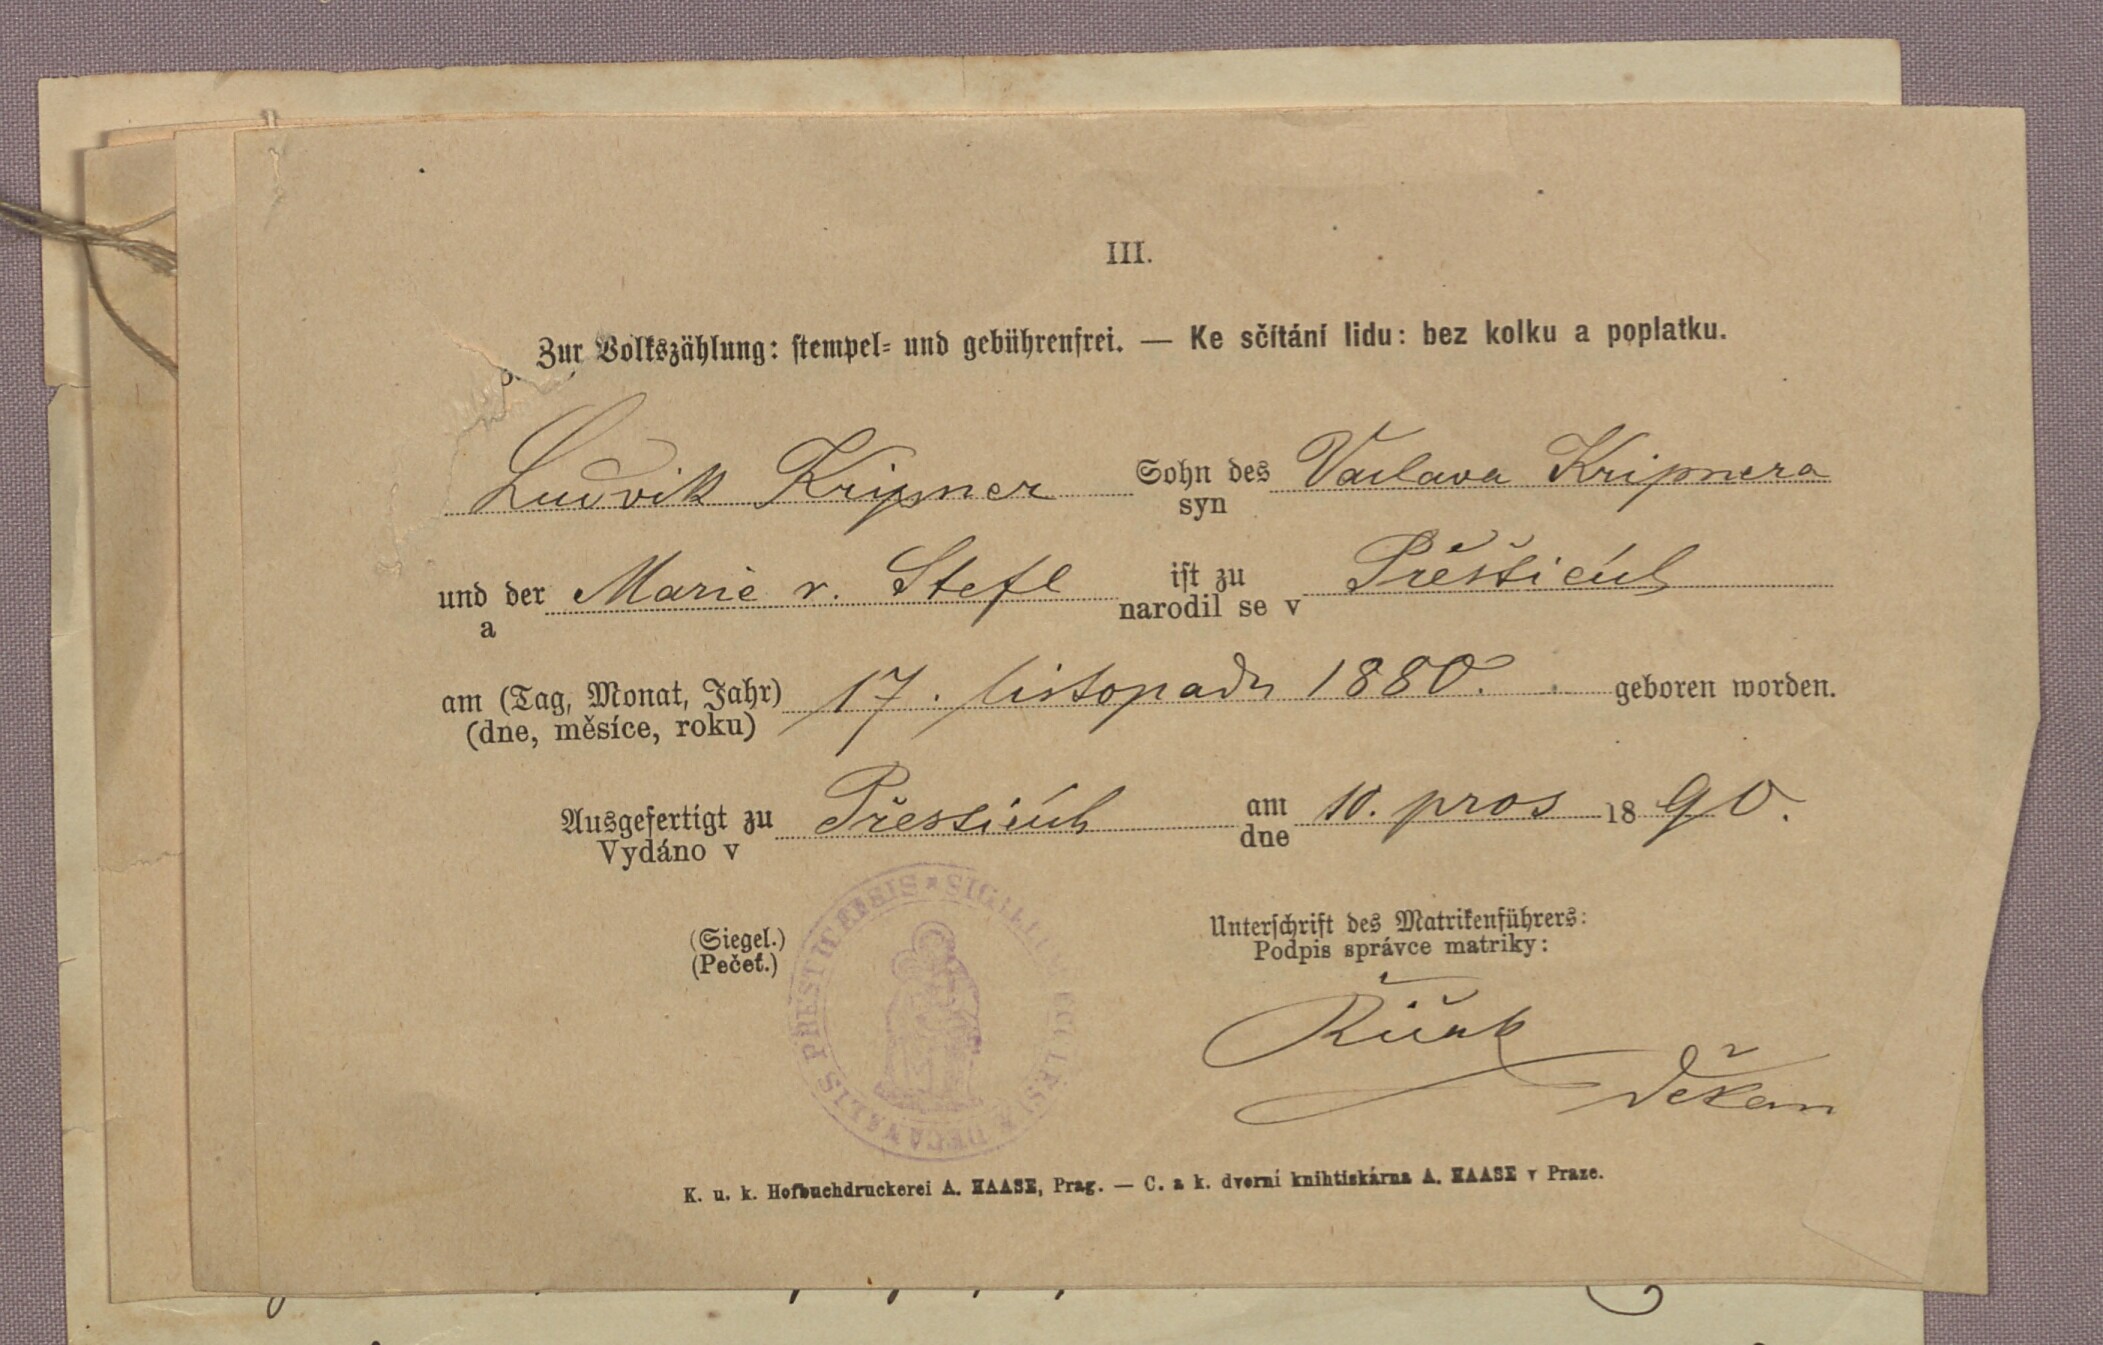 III.
Zur Volkszählung: stempel- und gebührenfrei. — Ke sčítání lidu: bez kolku a poplatku.
Ludvik Kripner Sohn des Vaclava Kripnera
syn
und der Marie r. Stefl ist zu Přěšticích
a narodil se v
am (Tag, Monat, Jahr) 17. listopadu 1880. geboren worden.
(dne, měsíce, roku)
Ausgefertigt zu Přesticích am 10. pros 1890.
Vydáno v dne
(Siegel.) Unterschrift des Matrikenführers:
(Pečeť.) Podpis správce matriky:
děkan
SIGILLUM ECCLESIÆ DECANALIS PRESTICENSIS
K. u. k. Hofbuchdruckerei A. HAASE, Prag. — C. a k. dvorní knihtiskárna A. HAASE v Praze.